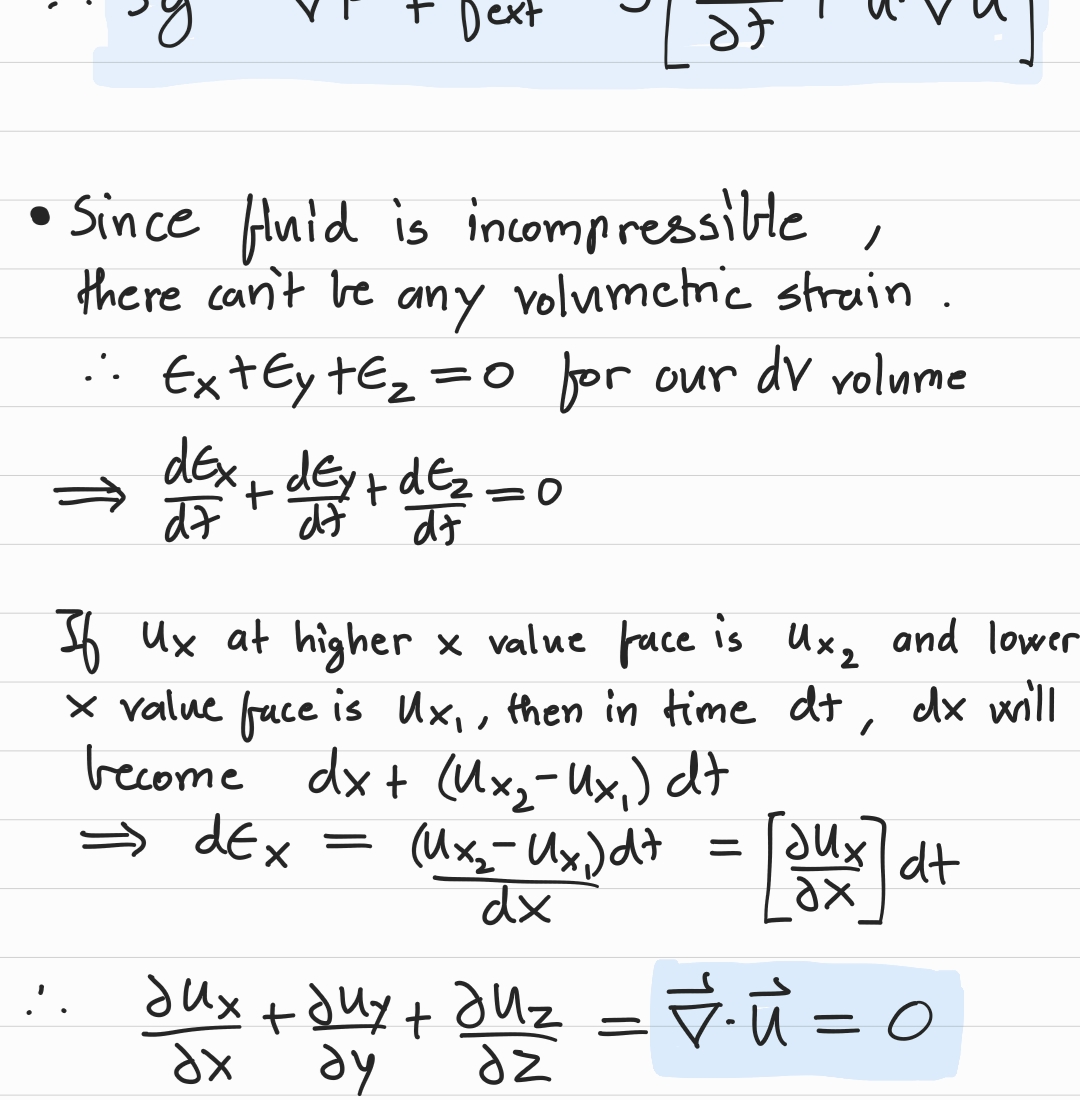 ∴ ρg ∇P + f_ext ρ[∂/∂t + u·∇u]
• Since fluid is incompressible ,
there can't be any volumetric strain .
∴ ϵ_x + ϵ_y + ϵ_z = 0 for our dV volume
⟹ dϵ_x/dt + dϵ_y/dt + dϵ_z/dt = 0
If u_x at higher x value face is u_x₂ and lower
x value face is u_x₁, then in time dt, dx will
become dx + (u_x₂ - u_x₁) dt
⟹ dϵ_x = (u_x₂ - u_x₁)dt/dx = [∂u_x/∂x] dt
∴ ∂u_x/∂x + ∂u_y/∂y + ∂u_z/∂z = ∇⃗·u⃗ = 0